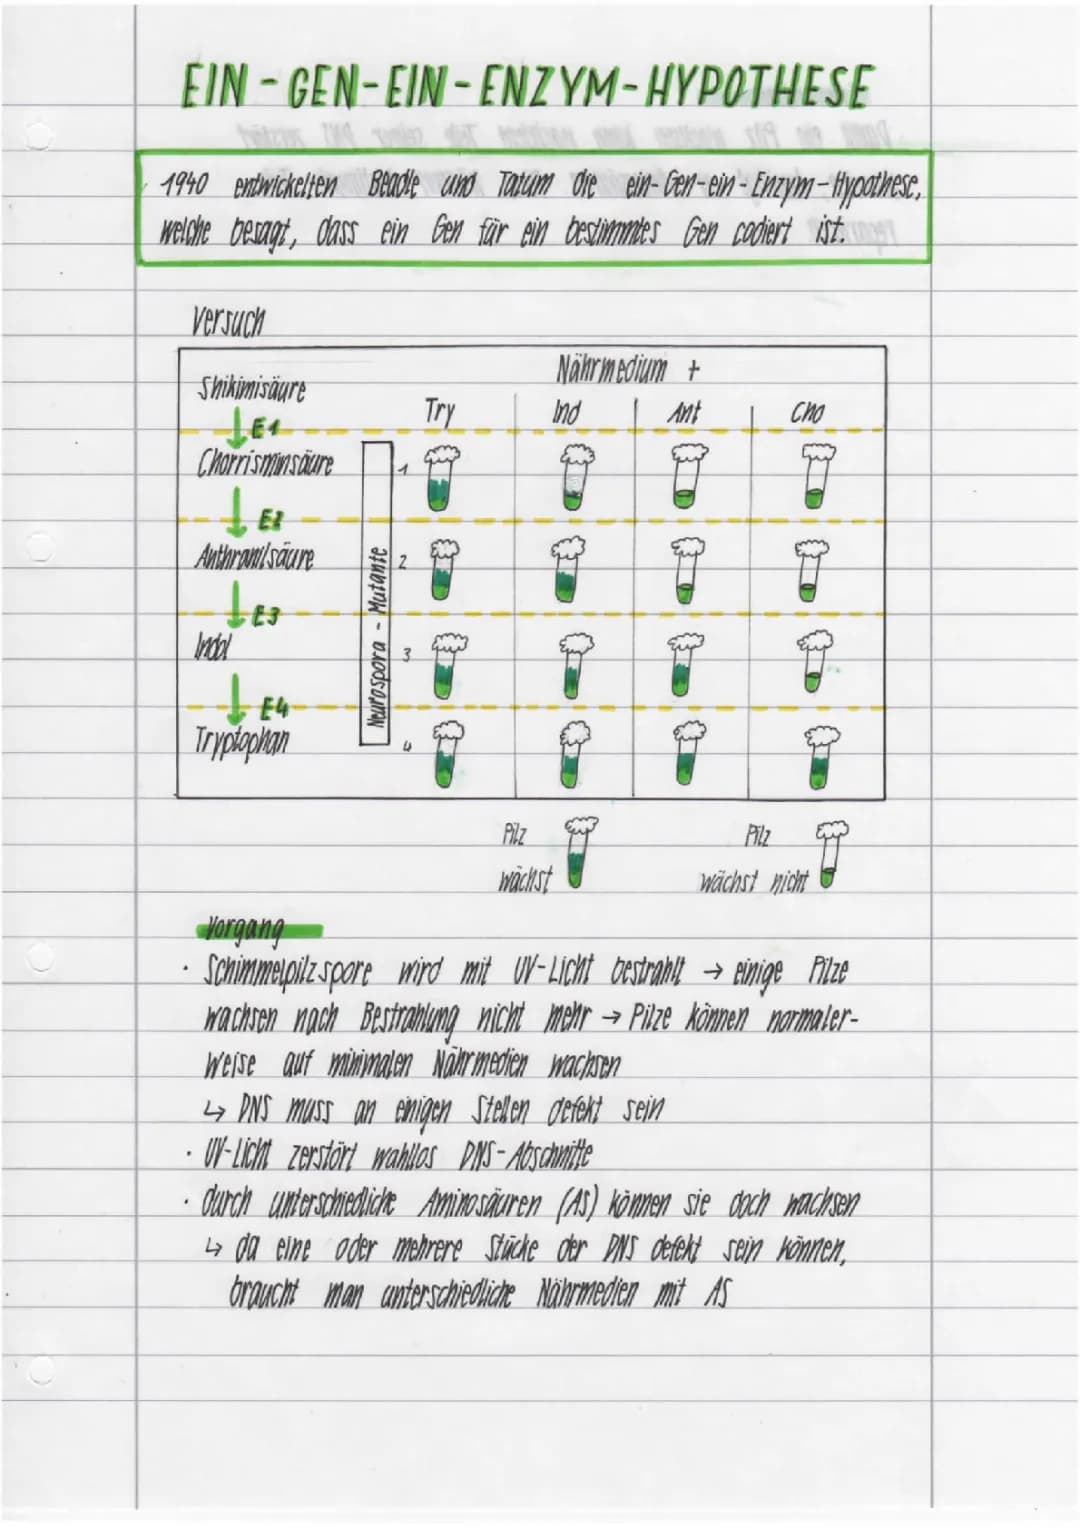 EIN-GEN-EIN-ENZYM-HYPOTHESE
1940 entwickelten Beadle und Tatum die ein-Gen-ein-Enzym-Hypothese,
welche besagt, dass ein Gen für ein bestimmtes Gen codiert ist.
Versuch
Nährmedium +
Shikimisäure
Try Ind Ant Cho
E1
Chorrisminsäure
1
E2
Anthranilsäure
2
E3
Indol
3
E4
Tryptophan
4
Neurospora - Mutante
Pilz
wächst
Pilz
wächst nicht
Vorgang
· Schimmelpilzspore wird mit UV-Licht bestrahlt → einige Pilze
wachsen nach Bestrahlung nicht mehr → Pilze können normaler-
weise auf minimalen Nährmedien wachsen
↳ DNS muss an einigen Stellen defekt sein
· UV-Licht zerstört wahllos DNS-Abschnitte
· durch unterschiedliche Aminosäuren (AS) können sie doch wachsen
↳ da eine oder mehrere Stücke der DNS defekt sein können,
braucht man unterschiedliche Nährmedien mit AS